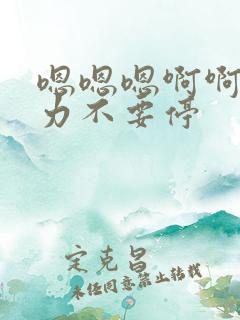 嗯嗯嗯啊啊
力不要停
定克昌
未经同意禁止转载